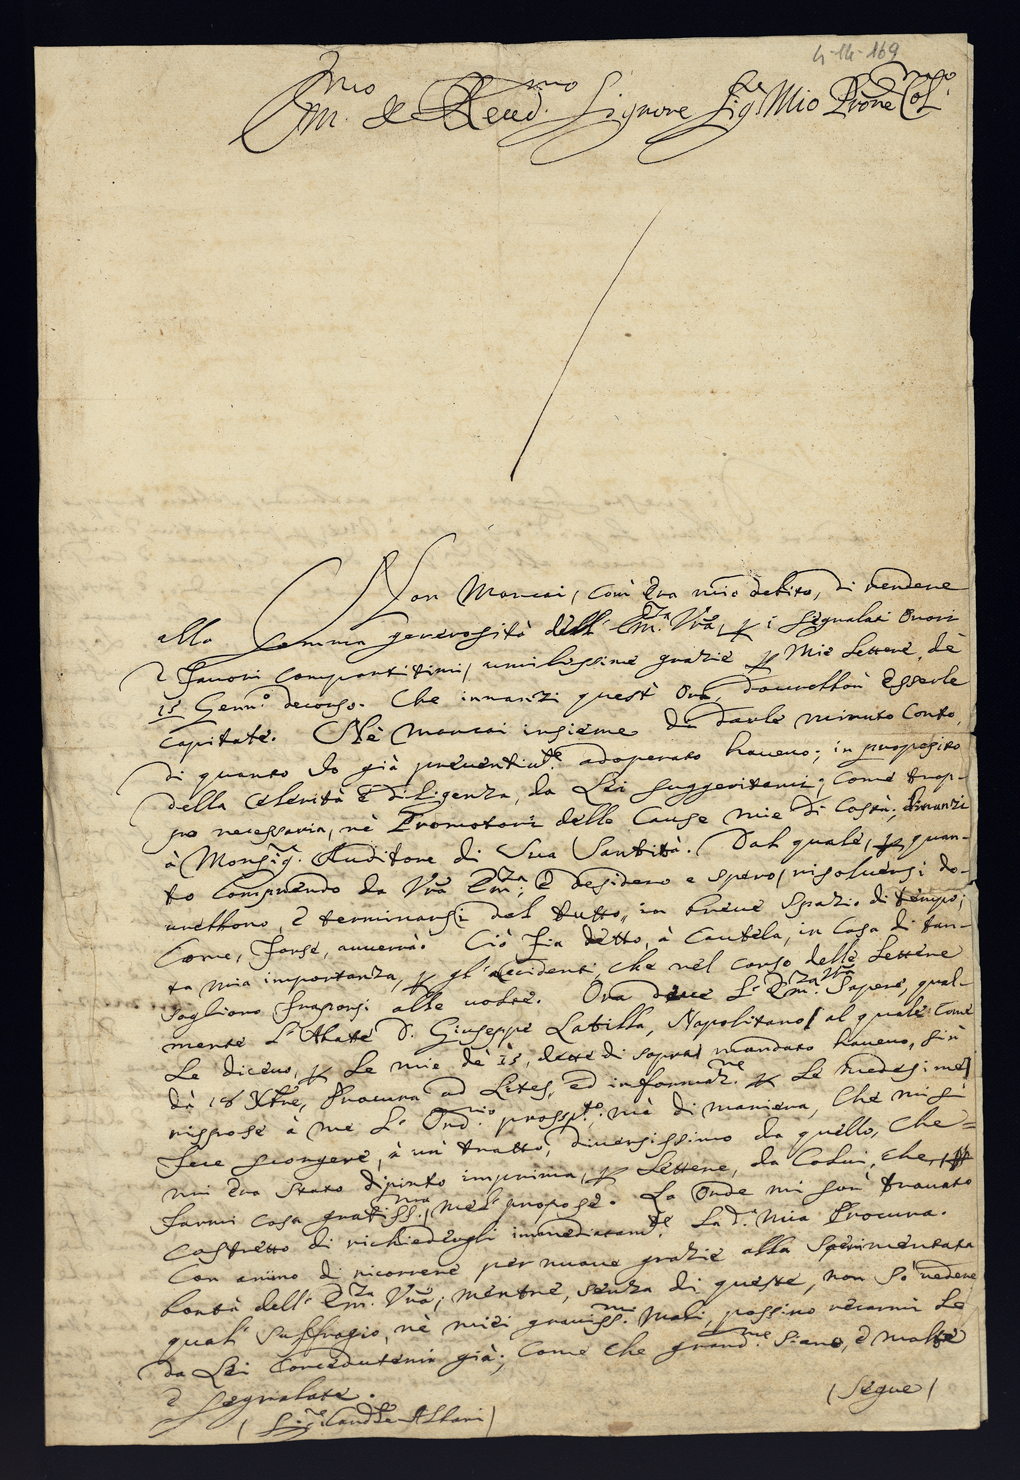 4-14-169
Em.mo & Reud.mo Signore Sig.re Mio Prōne Col.mo
Non Mancai, com' era mio debito, di rendere
alla somma generosità dell' Em.za Vrā, p i segnalati onori
e favori compartitimi, umilissime grazie p Mie lettere, de
15 Genn.o decorso. Che innanzi quest' ora, dourebbon' esserle
capitate. Nè mancai insieme di darle minuto conto,
di quanto Io già preuentiu.te adoperato haueuo; in proposito
della celerità e diligenza, da Lei suggeritemi; come trop-
po necessaria, nè Promotori delle Cause mie di Costà; dinanzi
à Monsig.r Auditore di Sua Santità. Dal quale, p quan-
to comprendo da Vrā Em.za; e desidero e spero, risoluersi do-
urebbono, e terminarsi del tutto, in breue spazio di tempo;
Come, forse, auuerrà. Ciò sia detto, à Cautela, in Cosa di tan-
ta mia importanza, p gl' accidenti, che nel corso delle lettere
sogliono fraporsi alle uolte. Ora deue l' Em.za Vrā sapere, qual-
mente l' Abate D. Giuseppe Labilla, Napolitano, al quale come
le diceuo, p le mie de 15, dette di sopra, mandato haueuo, sin'
dà 18 Xbre, Procura ad Lites, ed informaz.ne p le medesime,
risspose à me l' Ord.rio prossp.to, mà di maniera, che mi si
fece scorgere, à un' tratto, diuersissimo da quello, che
mi era stato dipinto imprima, p lettere, da Colui, che, p
farmi cosa gratiss.ma, mel' propose. La onde mi son' trouato
costretto di richiedergli immediatam.te la d.a mia Procura.
Con animo di ricorrere per nuoue grazie alla sperimentata
bontà dell' Em.za Vrā; mentre, senza di queste, non sò uedere
qual' suffragio, nè miei grauiss.mi Mali, possino recarmi le
da Lei concedutemi già; come che grand.me siano, e molte
e segnalate.
(segue)
(Sig.re Card.le Albani)